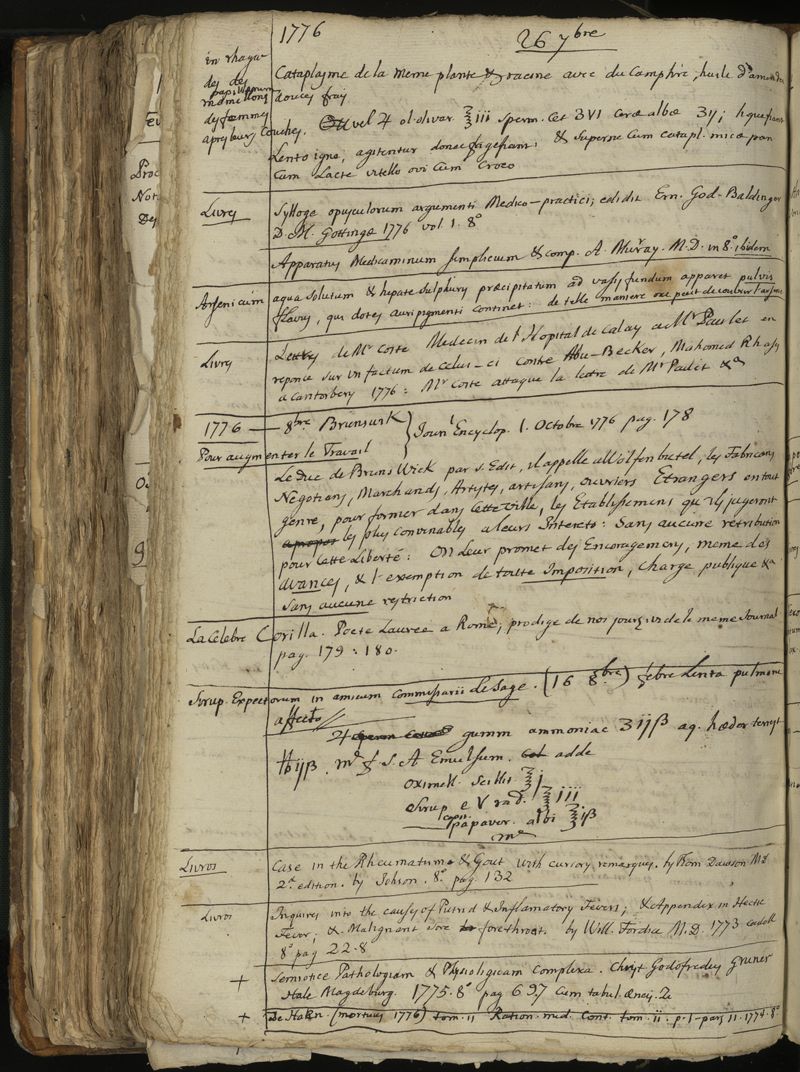 1776
26 7bre
en rhagas
des des
papillarum
mamellons
des femmes
apres leurs couches.
Cataplasme de la meme plante & racine avec du Camphre, huile d'amendes
douces fray
vel ♃ ol. olivar ℥iii sperm. Cet ʒVI Ceræ albæ ʒij; liquefiant
Lento igne, agitentur donec frigefiant, & superne Cum catapl. micæ pan
Cum Lacte vitello ovi Cum Croco
Livres
Sylloge opusculorum argumenti Medico-practici; edidit Ern. God. Baldinger
D. M. Gottingæ 1776 vol 1. 8°
Apparatus Medicaminum simplicium & comp. A. Murray. M.D. in 8° ibidem
Arsenicum
aqua solutum & hepate sulphuris præcipitatum ad vasis fundum apparet pulvis
flavus, qui dotes auripigmenti continet: de telle maniere on peut decouvrir l'arsenic
Livres
Lettres de Mr Coste Medecin de l'Hopital de Calay a Mr Paulet en
reponce sur un factum de celui-ci contre Abu-Becker, Mahomed Rhasis
a Cantorbery 1776: Mr Coste attaque la lettre de Mr Paulet &a
1776 — 8bre Brunswik
Pour augmenter le Travail
Journl Encyclop. 1. Octobre 1776 pag. 178
Le Duc de BrunsWick par s. Edit, il appelle a Wolfenbutel, les Fabricans
Negotiens, Marchands, Artistes, artisans, ouvriers Etrangers en tout
genre, pour former dans Cette ville, les Etablissemens qu'ils jugeront
apropos les plus Convenables a leurs Interets: Sans aucune retribution
pour Cette Liberté: On Leur promet des Encoragemens, meme des
avances, & l'exemption de toute Imposition, Charge publique &a
Sans aucune restriction
La Celebre Corilla. Poete Laurée a Rome; prodige de nos jours, vide le meme Journal
pag. 179: 180.
Sirup. Expectorum in amicum Commissarii Lesage. (16 8bre) febre Lenta pulmone
affecto
♃ gumm ammoniac ʒijß aq. hæder terrest
℔ijß. m. f S. A Emulsum. Col adde
Oximell. Scillit ℥j
Sirup e V rad. ℥iii
capit. papaver. albi ℥iß
me
Livros
Case in the Rheumatism & Gout with cursory remarques. by Thom Dawson MD
2a edition. by Johson. 8° pag. 132
Livros
Inquires into the causes of Putrid & Inflamatory Fevers; & Appendix in Hectic
Fever; & Malignant Sore sorethroat. by Will. Fordice M.D. 1773 cadell
8° pag 228
+ Semiotice Pathologiam & Physiologicam Complexa. Christ Godofredus Gruner
Hale Magdeburg. 1775. 8° pag 697 Cum tabul. æneis. 2e
+ De Haen (mortuus 1776) tom. 11 Ration. med. Cont. tom. ii. p. 1 - pars 11. 1774. 8°